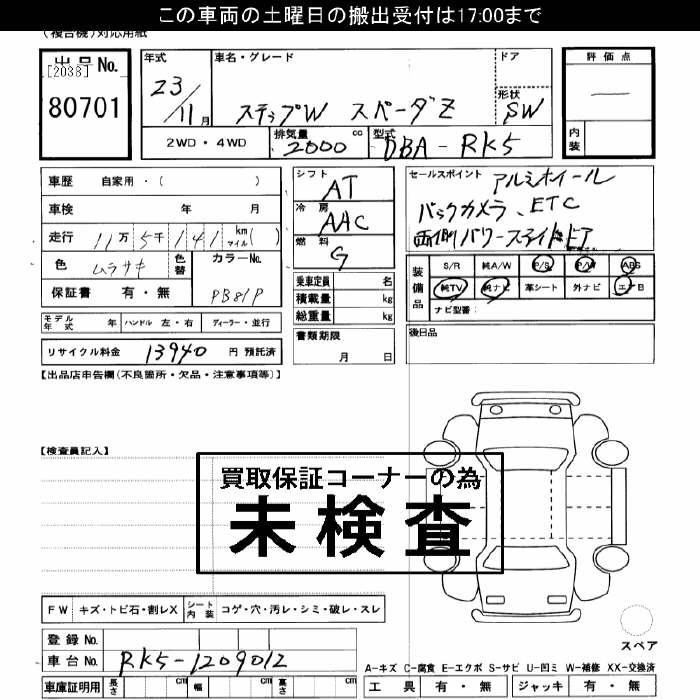 この車両の土曜日の搬出受付は17:00まで
(複合機)対応用紙
出品No.
[2038]
80701
年式
23/11月
車名・グレード
ステップW スパーダZ
ドア
形状
SW
評価点
内装
2WD・4WD
排気量
2000 cc
型式
DBA-RK5
車歴 自家用・( )
車検 年 月
走行 11万5千141 km マイル( )
色 ムラサキ
色替
カラーNo.
PB81P
保証書 有・無
シフト
AT
冷房
AAC
燃料
G
乗車定員 名
積載量 kg
総重量 kg
書類期限
月 日
セールスポイント アルミホイール
バックカメラ、ETC
両側パワースライドドア
装備品
S/R 純A/W P/S P/W ABS
純TV 純ナビ 革シート 外ナビ エアB
ナビ型番:
後日品
モデル年式 年 ハンドル 左・右 ディーラー・並行
リサイクル料金 13940 円 預託済
【出品店申告欄(不良箇所・欠品・注意事項等)】
【検査員記入】
買取保証コーナーの為
未検査
FW キズ・トビ石・割レX シート内装 コゲ・穴・汚レ・シミ・破レ・スレ
登録No.
車台No. RK5-1209012
車庫証明用 長さ cm 幅 cm 高さ cm
スペア
A-キズ C-腐食 E-エクボ S-サビ U-凹ミ W-補修 XX-交換済
工具 有・無 ジャッキ 有・無